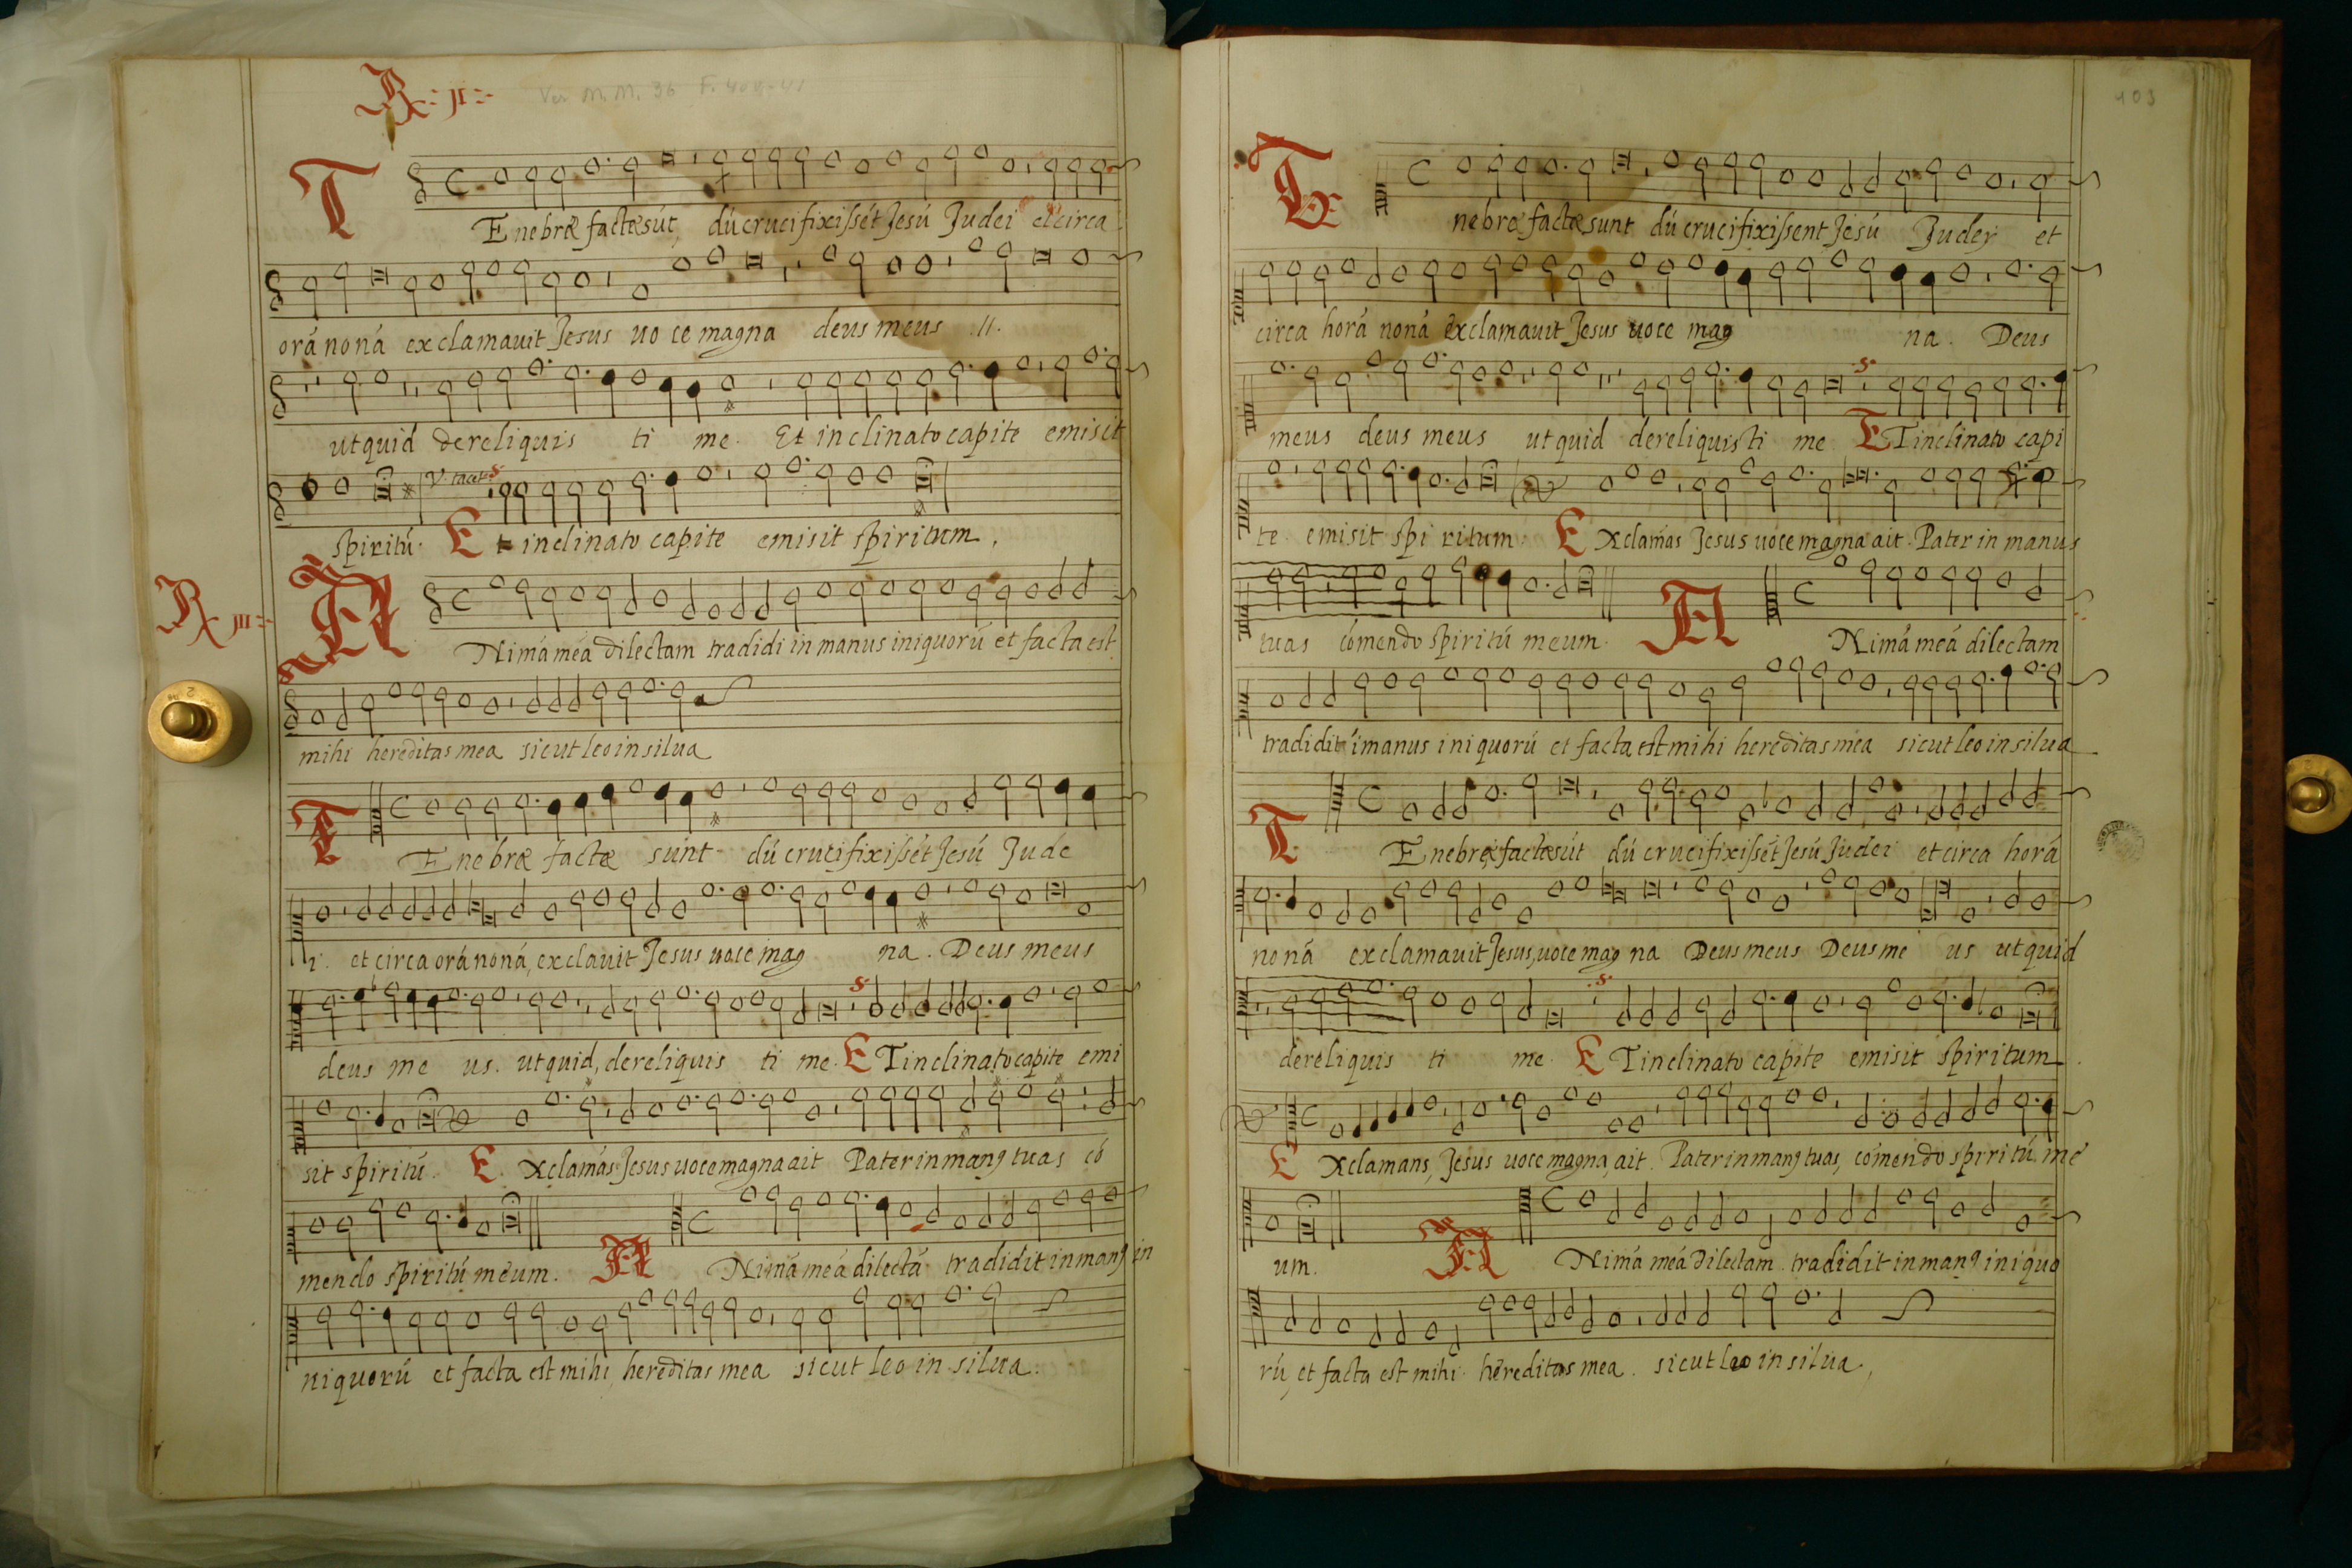 R. II.
Ver M.M. 36 F. 40v-41
TEnebræ factæ sút dú crucifixissét Jesú Judei et circa
orá noná exclamauit Jesus uo ce magna deus meus .II.
ut quid dereliquis ti me. Et inclinato capite emisit
V. tacet S.
spiritú. Et inclinato capite emisit spiritum.
R. III.
ANimá meá dilectam tradidi in manus iniquorú et facta est
mihi hereditas mea sicut leo in silua
TEnebræ factæ sunt dú crucifixissét Jesú Jude
i. et circa orá noná, exclauit Jesus uoce mag na. Deus meus
S.
deus me us. ut quid, dereliquis ti me. ET inclinato capite emi
sit spiritú. Exclamás Jesus uoce magna ait Pater in man9 tuas có
mendo spiritú meum. ANimá meá dilectá tradidit in man9 in
niquorú et facta est mihi, hereditas mea sicut leo in silua.
103
Tenebræ factæ sunt dú crucifixissent Jesú Judej et
circa horá noná exclamauit Jesus uoce mag na. Deus
S.
meus deus meus ut quid dereliquisti me ET inclinato capi
te. emisit spi ritum. Exclamás Jesus uoce magna ait. Pater in manus
tuas cómendo spiritú meum. ANimá meá dilectam
tradidit imanus iniquorú et facta est mihi hereditas mea sicut leo in silua
TEnebræ factæ sút dú crucifixissét Jesú Judei et circa horá
noná exclamauit Jesus, uoce mag na Deus meus Deus me us ut quid
S.
dereliquis ti me. ET inclinato capite emisit spiritum.
Exclamans, Jesus uoce magna, ait. Pater in man9 tuas, cómendo spiritú me
um. ANimá meá dilectam. tradidit in man9 iniquo
rú, et facta est mihi. hereditas mea. sicut leo in silua.